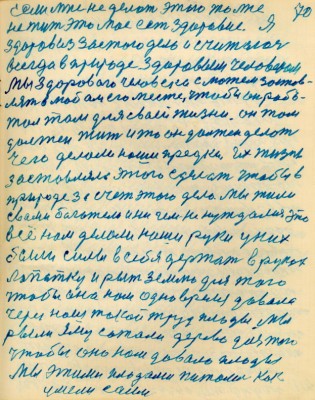 если мне не делать этого то мне 70
не жить это мое есть здоровие. Я
здоров из за этого дела и считался
всегда в природе здоровым человеком
Мы здорового человека сможем застав-
лять в любом его месте, чтобы он рабо-
тал там для своей жизни. он там
должен жить и то он должен делать
чего делали наши предки. их жизнь
заставляла этого сделать чтобы в
природе за счет этого дела мы жили
своим богатели и ни чем не нуждались Это
всё нам делали наши руки у них
были силы в себя держать в руках
лопатку и рыть землю для того
чтобы она нам одновремя давала
через наш такой труд плоды. Мы
рыли яму сажали дерево для того
чтобы оно нам давало плоды
Мы этими плодами питались как
умели сами